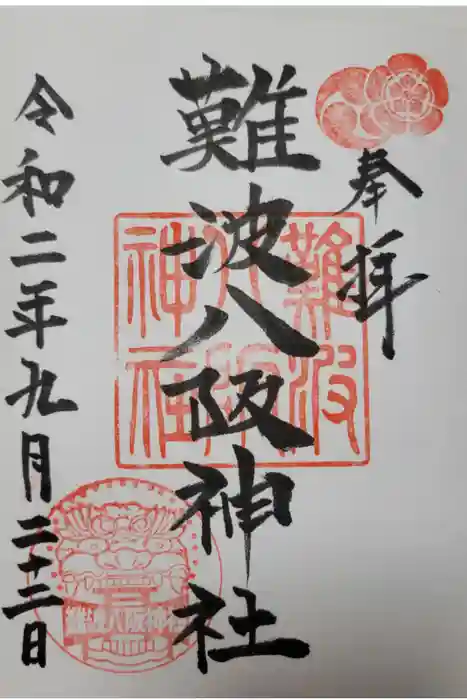 奉拝
難波八阪神社
令和二年九月二十三日
難波八阪神社
難波八阪神社